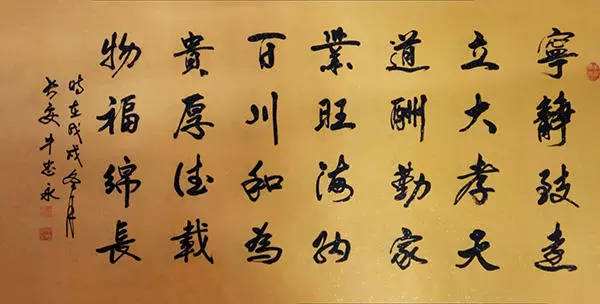 寧靜致遠
立大孝天
道酬勤家
業旺海納
百川和為
貴厚德載
物福綿長
時在戊戌冬月
長安牛忠永